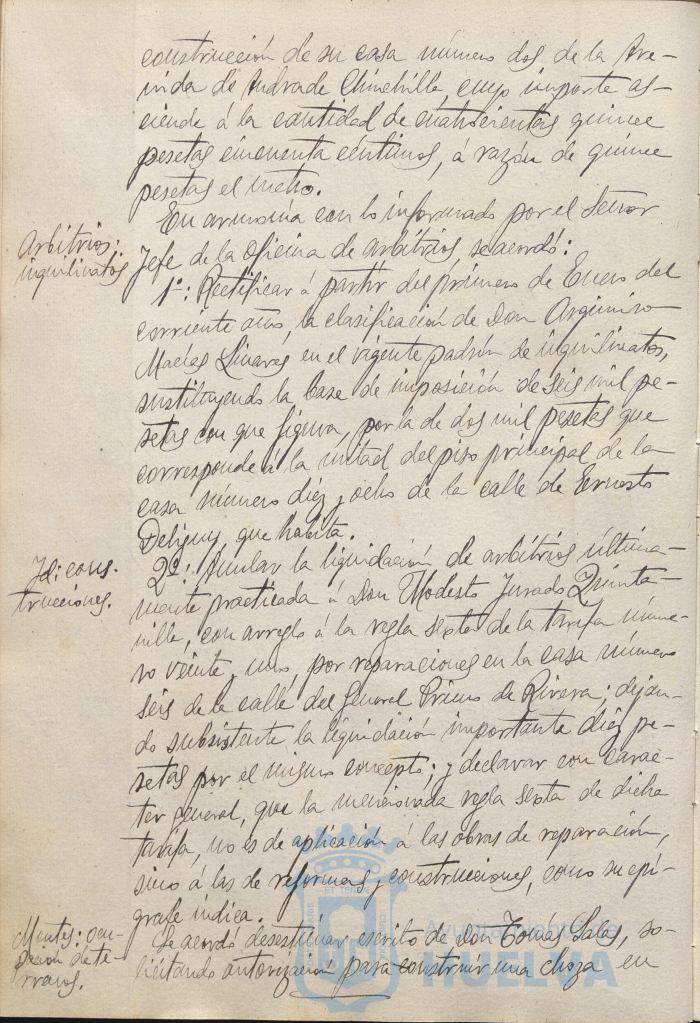 construcción de su casa número dos de la Ave-
nida de Andrade Chinchilla cuyo importe as-
ciende á la cantidad de cuatrocientas quince
pesetas cincuenta céntimos, á razón de quince
pesetas el metro.
En armonía con lo informado por el Señor
Arbitrios:
inquilinatos
Jefe de la oficina de arbitrios, se acordó:
1º: Rectificar á partir del primero de Enero del
corriente año, la clasificación de Don Argimiro
Macías Linares en el vigente padrón de inquilinatos,
sustituyendo la base de imposición de seis mil pe-
setas con que figura, por la de dos mil pesetas que
corresponde á la mitad del piso principal de la
casa número diez y ocho de la calle de Ernesto
Deligny, que habita.
Id: cons-
trucciones.
2º: Anular la liquidación de arbitrios última-
mente practicada á Don Modesto Jurado Quinta-
nilla, con arreglo á la regla sexta de la tarifa núme-
ro veinte y uno, por reparaciones en la casa número
seis de la calle del General Primo de Rivera; dejan-
do subsistente la liquidación importante diez pe-
setas por el mismo concepto; y declarar con carac-
ter general, que la mencionada regla sexta de dicha
tarifa, no es de aplicación á las obras de reparación,
sino á las de reformas y construcciones, como su epí-
grafe indica.
Montes: ocu-
pación de te-
rrenos.
Se acordó desestimar escrito de Don Tomás Sales, so-
licitando autorización para construir una choza en
Ayuntamiento de
HUELVA